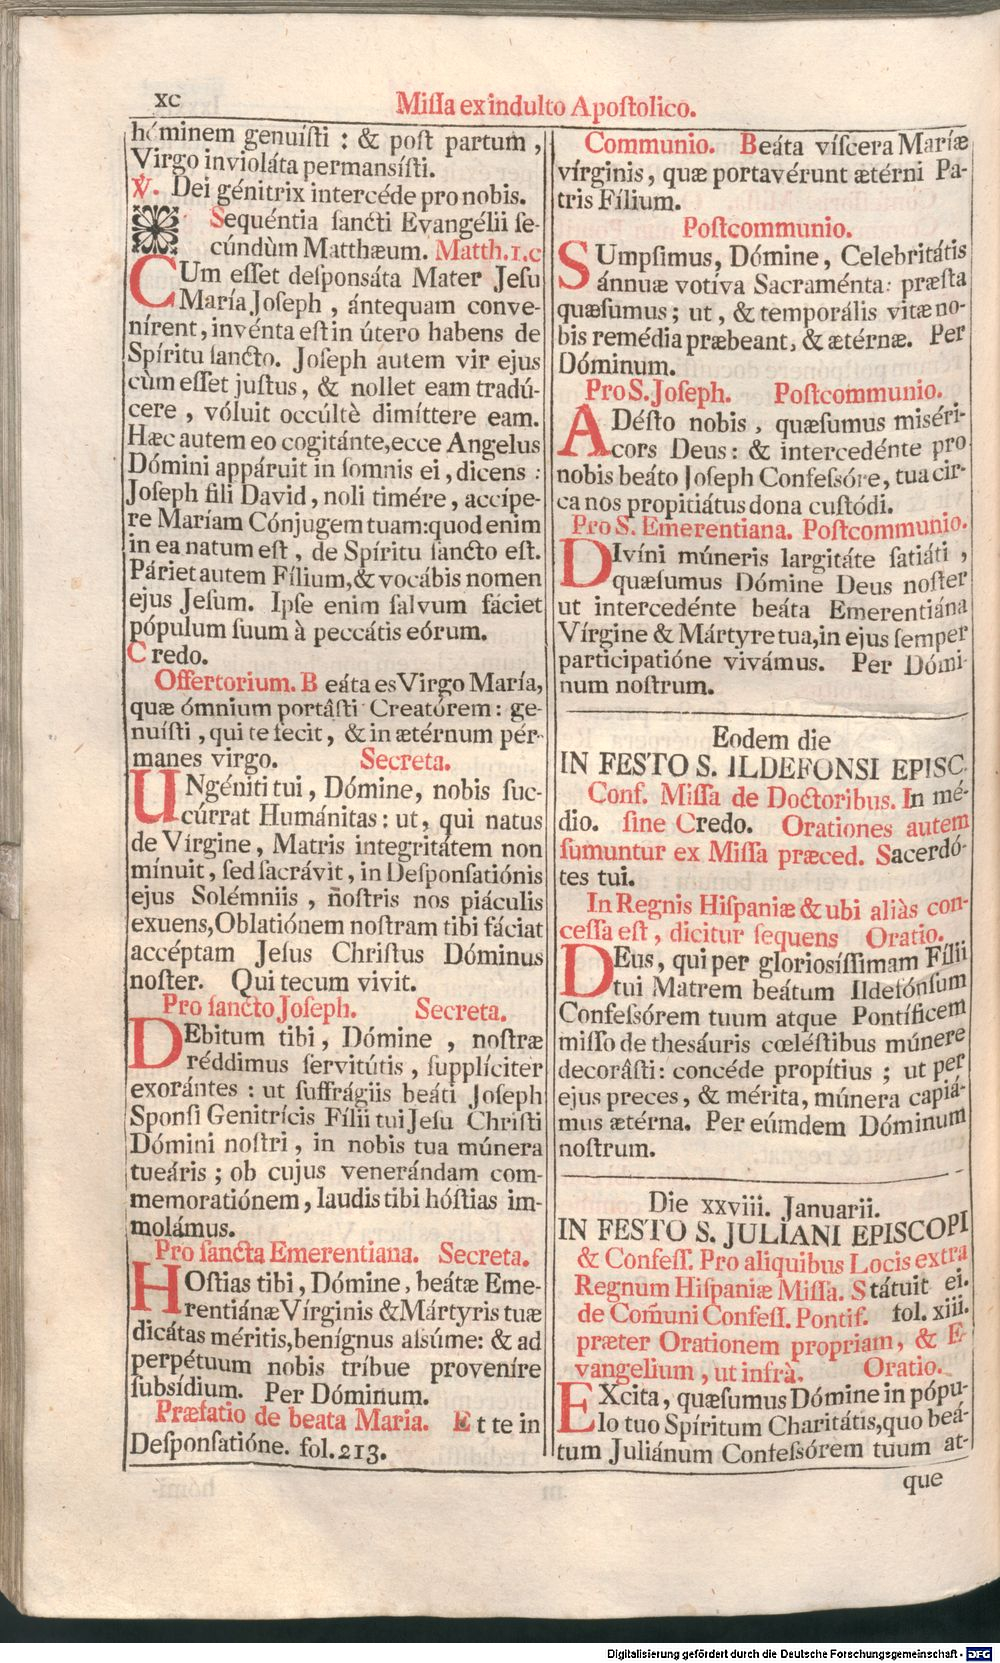 xc
Miſſa ex indulto Apoſtolico.
hóminem genuíſti : & poſt partum ,
Virgo invioláta permansíſti.
℣. Dei génitrix intercéde pro nobis.
Sequéntia ſancti Evangélii ſe-
cúndùm Matthæum. Matth.1.c
CUm eſſet deſponsáta Mater Jeſu
María Joſeph , ántequam conve-
nírent, invénta eſt in útero habens de
Spíritu ſancto. Joſeph autem vir ejus
cùm eſſet juſtus, & nollet eam tradú-
cere , vóluit occúltè dimíttere eam.
Hæc autem eo cogitánte,ecce Angelus
Dómini appáruit in ſomnis ei , dicens :
Joſeph fili David , noli timére, accípe-
re Maríam Cónjugem tuam:quod enim
in ea natum eſt , de Spíritu ſancto eſt.
Páriet autem Fílium,& vocábis nomen
ejus Jeſum. Ipſe enim ſalvum fáciet
pópulum ſuum à peccátis eórum.
Credo.
Offertorium. Beáta es Virgo María,
quæ ómnium portâſti Creatórem: ge-
nuíſti , qui te fecit, & in ætérnum pér-
manes virgo. Secreta.
UNgéniti tui , Dómine, nobis ſuc-
cúrrat Humánitas: ut, qui natus
de Vírgine, Matris integritátem non
mínuit, ſed ſacrávit, in Deſponſatiónis
ejus Solémniis , noſtris nos piáculis
exuens,Oblatiónem noſtram tibi fáciat
accéptam Jeſus Chriſtus Dóminus
noſter. Qui tecum vivit.
Pro ſancto Joſeph. Secreta.
DEbitum tibi , Dómine , noſtræ
réddimus ſervitútis , ſupplíciter
exorántes : ut ſuffrágiis beáti Joſeph
Sponſi Genitrícis Fílii tui Jeſu Chriſti
Dómini noſtri , in nobis tua múnera
tueáris ; ob cujus venerándam com-
memoratiónem, laudis tibi hóſtias im-
molámus.
Pro ſancta Emerentiana. Secreta.
HOſtias tibi, Dómine, beátæ Eme-
rentiánæ Vírginis & Mártyris tuæ
dicátas méritis,benígnus aſsúme: & ad
perpétuum nobis tríbue provenίre
ſubsídium. Per Dóminum.
Præfatio de beata Maria. Et te in
Deſponſatióne. fol.213.
Communio. Beáta víſcera Maríæ
vírginis, quæ portavérunt ætérni Pa-
tris Fílium.
Poſtcommunio.
SUmpſimus, Dómine, Celebritátis
ánnuæ votíva Sacraménta: præſta
quæſumus; ut , & temporális vitæ no-
bis remédia præbeant, & ætérnæ. Per
Dóminum.
Pro S. Joſeph. Poſtcommunio.
ADéſto nobis , quæſumus miséri-
cors Deus: & intercedénte pro
nobis beáto Joſeph Confeſsóre, tua cir-
ca nos propitiátus dona cuſtódi.
Pro S. Emerentiana. Poſtcommunio.
DIvíni múneris largitáte ſatiáti ,
quæſumus Dómine Deus noſter
ut intercedénte beáta Emerentiána
Vírgine & Mártyre tua,in ejus ſemper
participatióne vivámus. Per Dómi-
num noſtrum.
Eodem die
IN FESTO S. ILDEFONSI EPISC.
Conf. Miſſa de Doctoribus. In mé-
dio. ſine Credo. Orationes autem
ſumuntur ex Miſſa præced. Sacerdó-
tes tui.
In Regnis Hiſpaniæ & ubi aliàs con-
ceſſa eſt , dicitur ſequens Oratio.
DEus, qui per glorioſíſſimam Fílii
tui Matrem beátum Ildefónſum
Confeſsórem tuum atque Pontíficem
miſſo de theſáuris cœléſtibus múnere
decorâſti: concéde propítius ; ut per
ejus preces, & mérita, múnera capiá-
mus ætérna. Per eúmdem Dóminum
noſtrum.
Die xxviii. Januarii.
IN FESTO S. JULIANI EPISCOPI
& Confeſſ. Pro aliquibus Locis extra
Regnum Hiſpaniæ Miſſa. Státuit ei.
de Com̃uni Confeſſ. Pontif. fol. xiii.
præter Orationem propriam, & E-
vangelium , ut infrà. Oratio.
EXcita, quæſumus Dómine in pópu-
lo tuo Spíritum Charitátis,quo beá-
tum Juliánum Confeſsórem tuum at-
que
Digitalisierung gefördert durch die Deutsche Forschungsgemeinschaft - DFG